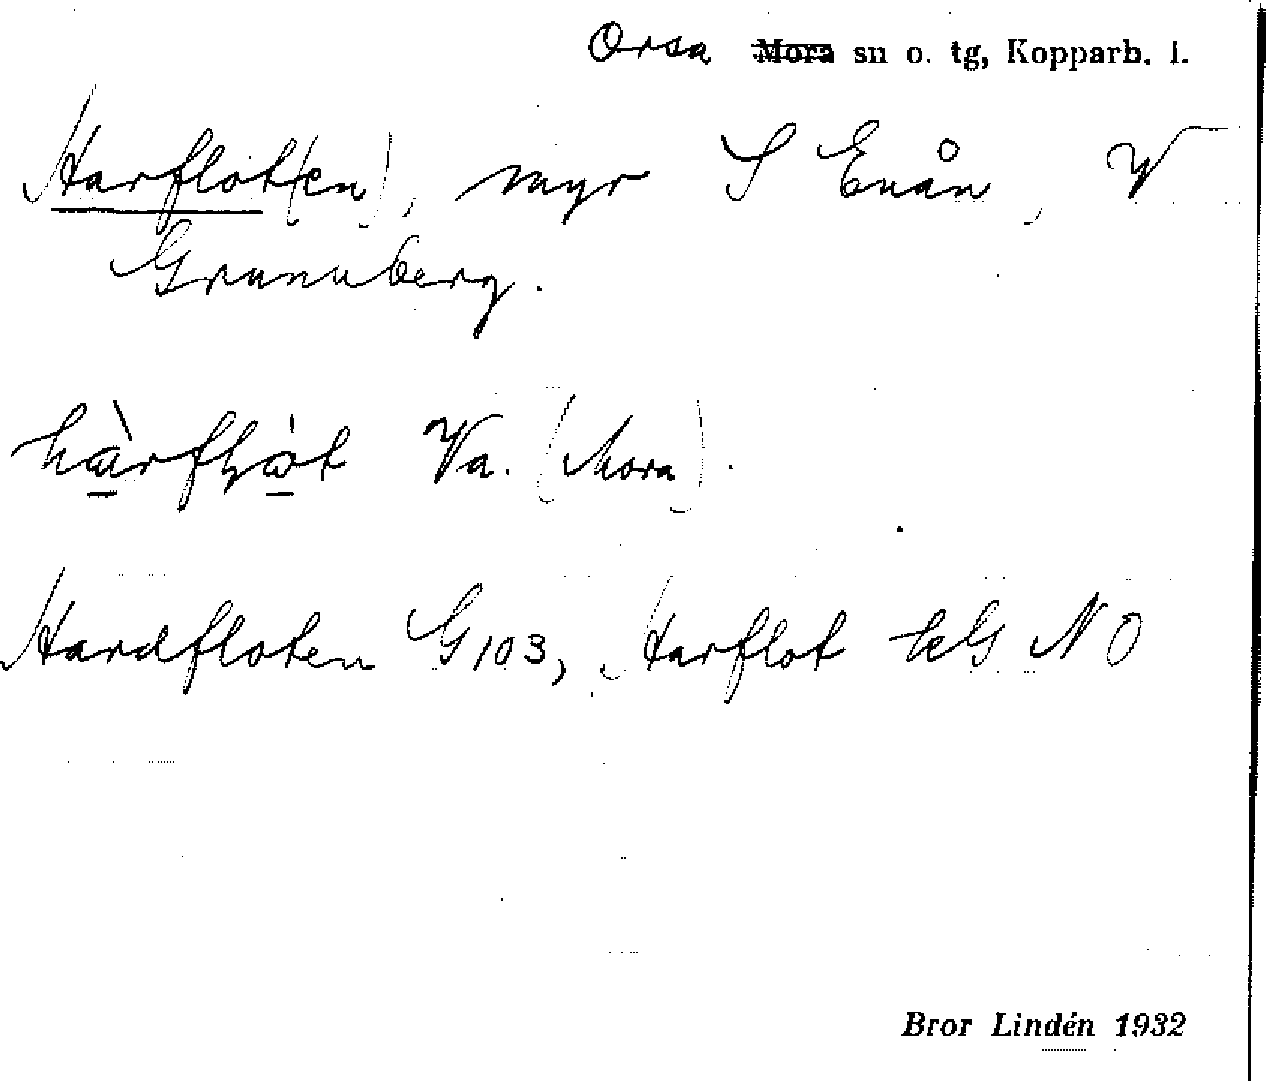 Orsa Mora sn o. tg, Kopparb. l.
Harflot(en), myr S Enån, V
Grunuberg.
Va. (Mora).
Hardfloten G 103, Harflot NO
Bror Lindén 1932